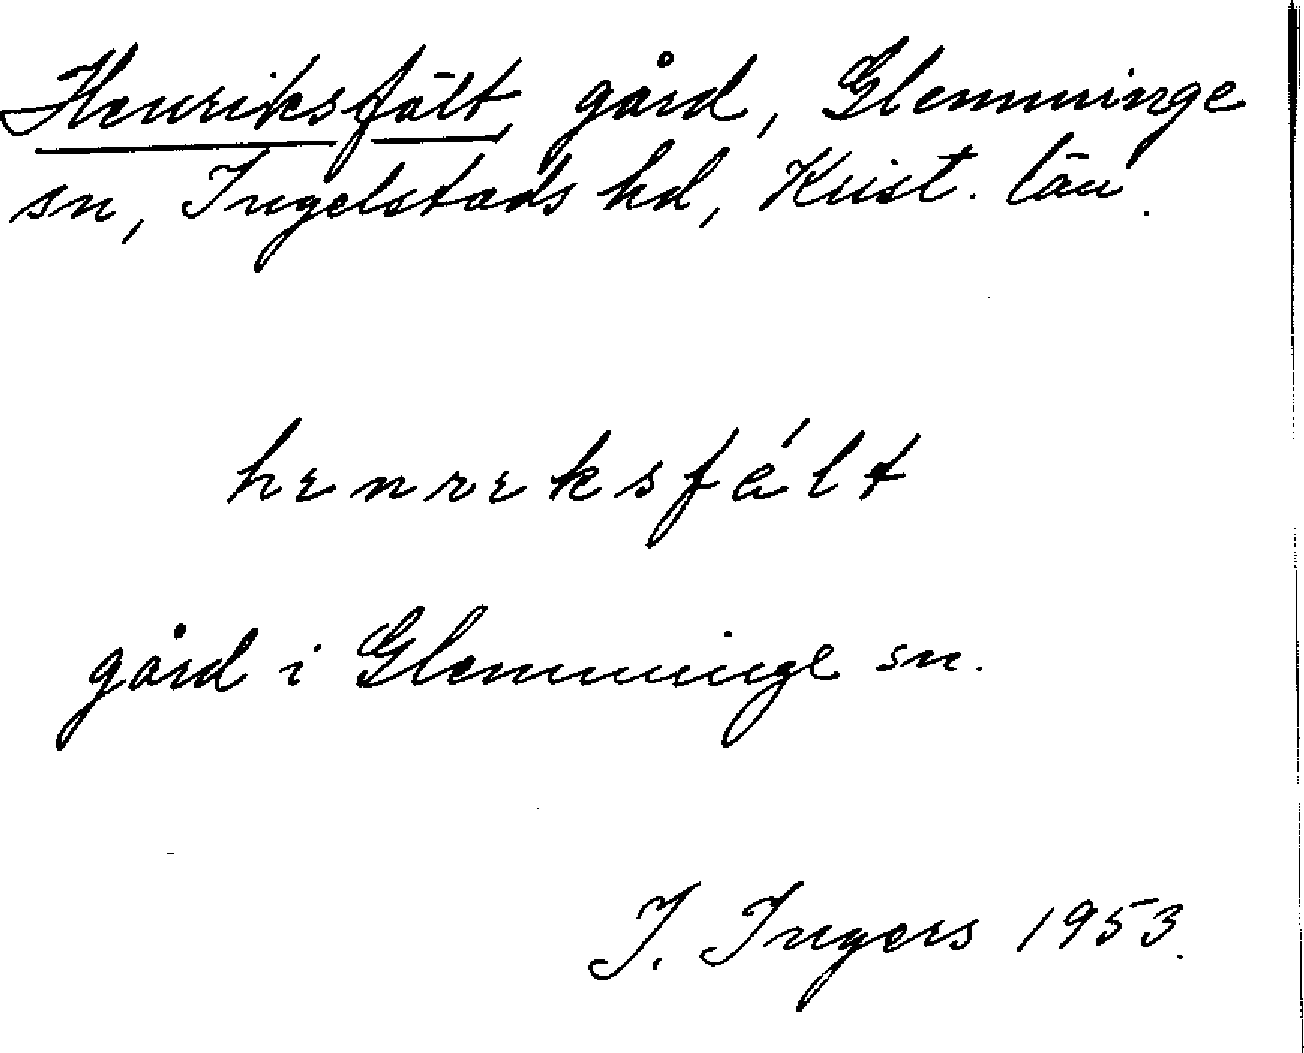 Henriksfält, gård, Glemminge
sn, Ingelstads hd, Krist. län.
hɛnrɛksfált
gård i Glemminge sn.
I. Ingers 1953.